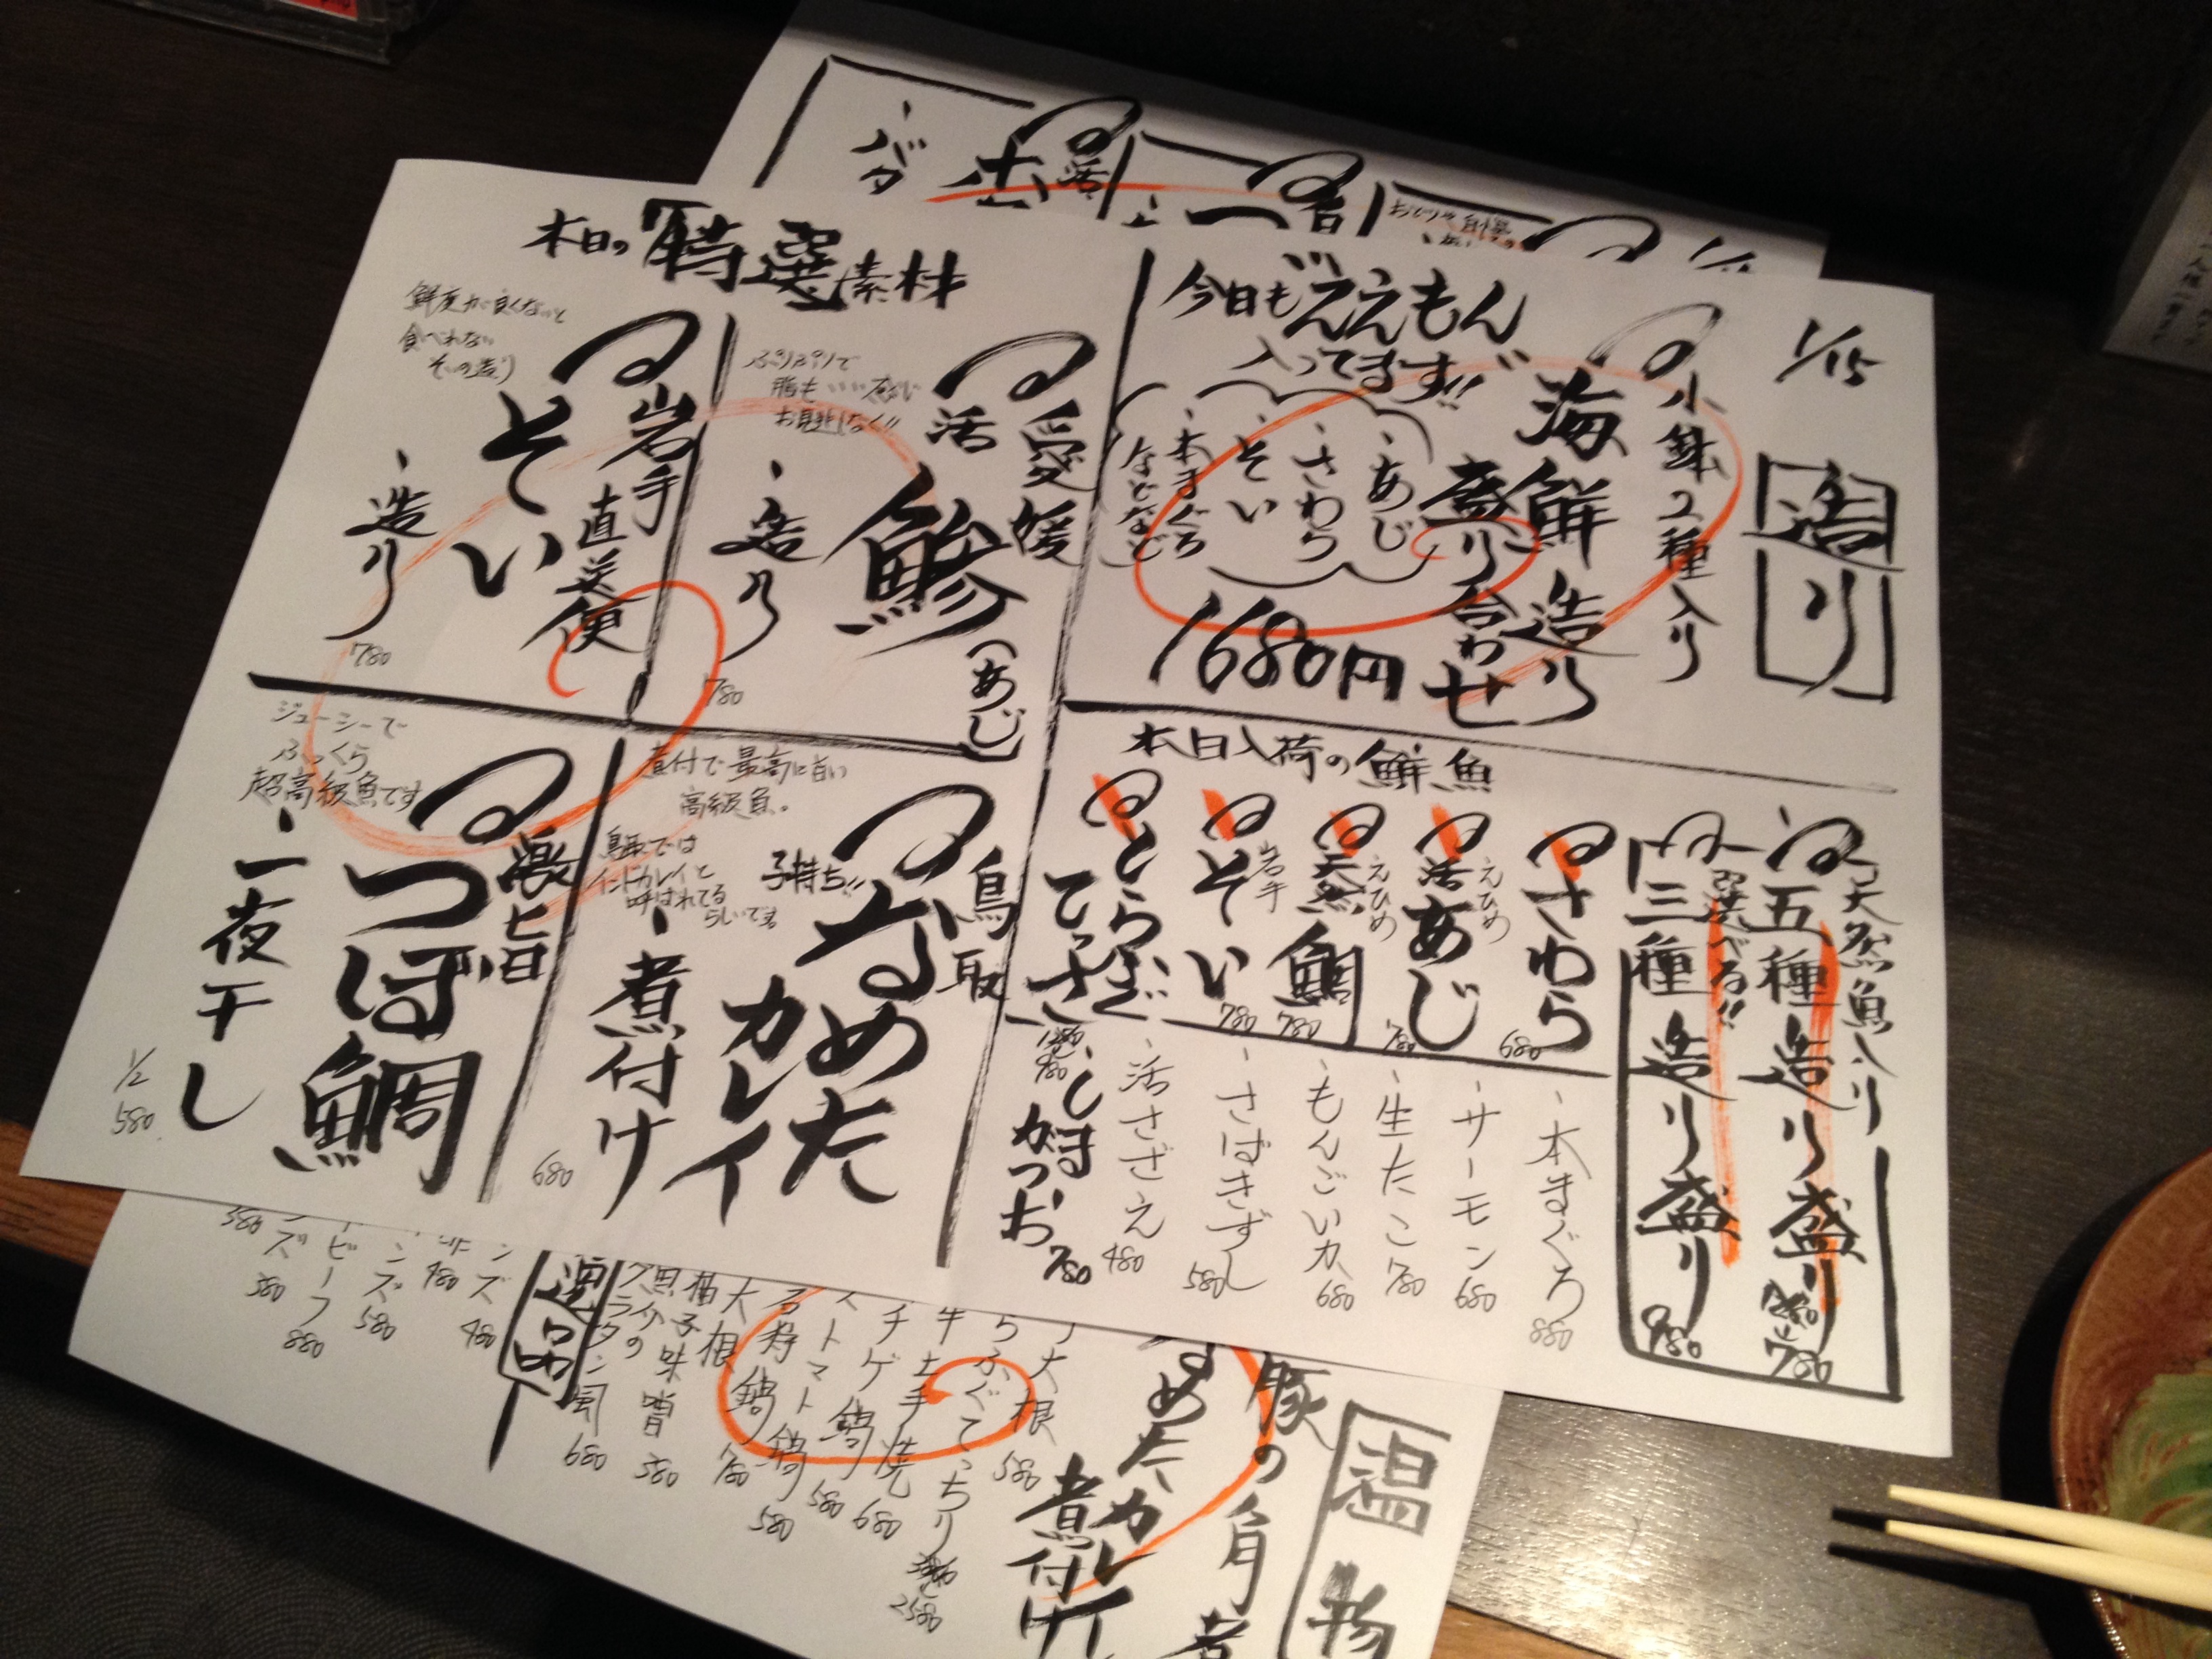 1/15
造り
小鉢2種入り
海鮮造り
盛り合わせ
・あじ
・さわら
・そい
・本まぐろ
などなど
1680円
今日もええもん
入ってます!!
天然魚入り
五種造り盛り
780
選べる!!
三種造り盛り
980
本日入荷の鮮魚
さわら
680
えひめ
活あじ
780
えひめ
天然鯛
780
岩手
そい
780
とらふぐ
てっさ
980
・本まぐろ
880
・サーモン
680
・生たこ
780
・もんごいカ
680
・さばきずし
580
・活さざえ
480
・しまがつお
780
本日の特選素材
愛媛
活
鯵(あじ)
ぷりぷりで
脂もいい感じ
お見逃しなく!!
・造り
780
岩手直送便
そい
鮮度が良くないと
食べれない
・造り
780
鳥取
子持ち!!
なめた
カレイ
煮付で最高に旨い
高級魚。
鳥取では
インドカレイと
呼ばれてる
らしいです
・煮付け
680
激旨
つぼ鯛
ジューシーで
ふっくら
超高級魚です
・一夜干し
1/2
580
温物
豚の角煮
なめたカレイ
煮付け
大根
580
ふぐてっちり
2580
牛土手焼
680
チゲ鍋
580
トマト鍋
580
石狩鍋
780
大根
柚子味噌
580
グラタン風
680
逸品
ンズ
480
480
ンズ
580
ビーフ
880
ズ
580
580